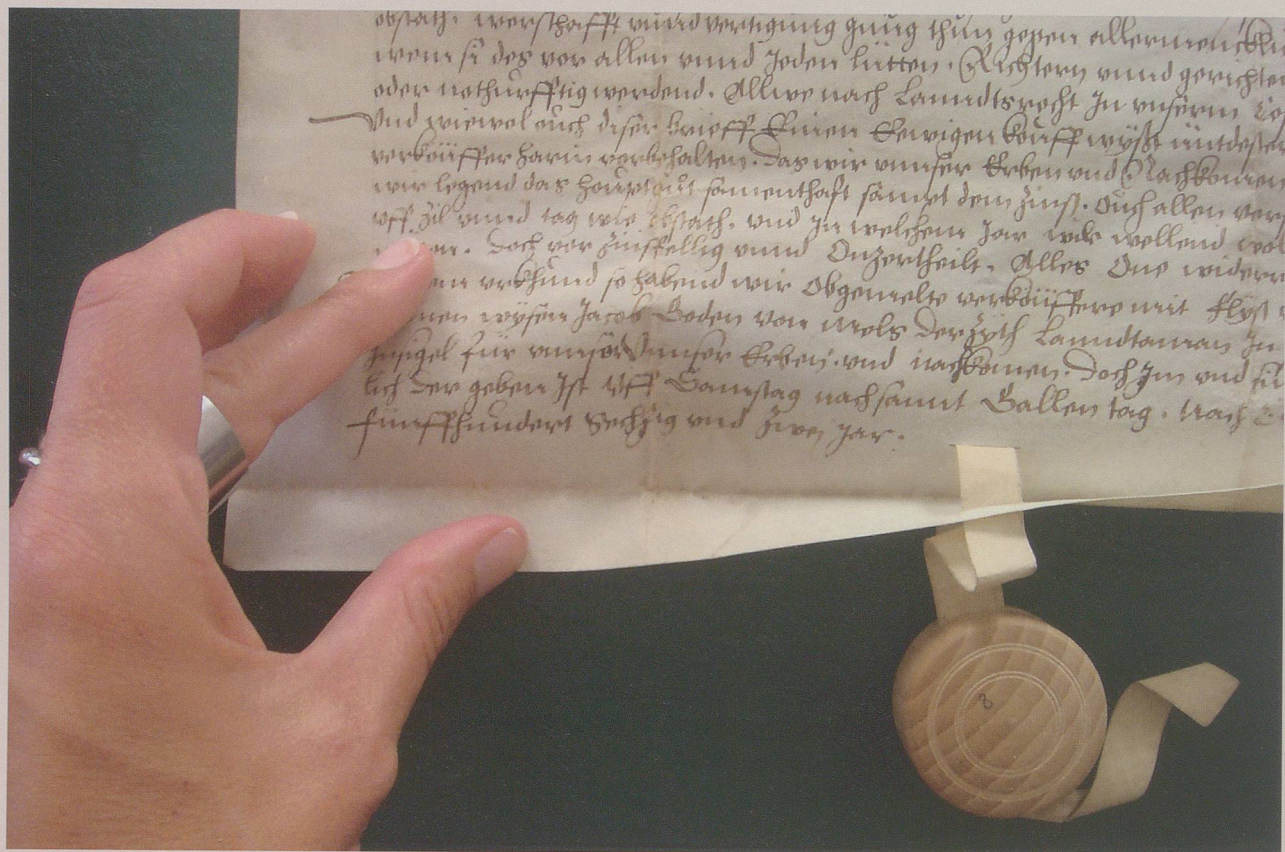 obstath. werschafft vnnd vertigung gnüg thün gegen allermencklich
wem si des vor allen vnnd Jeden lütten. Richtern vnnd gerichten
oder nothurfftig werdend. Allwe nach Lanndtsrecht In vnserm
Vnd wiewol ouch diser brieff Einen Eewigen kouff wyßt
verköuffer harin vorbehalten. das wir vnnser Erben vnd Nachkomen
wir legend das houptgüt samenthaft sampt dem Zinß. Ouch allen
vff Zil vnnd tag wie obstath. vnd In welchem Jar wir wellend
Doch vor Zinßfellig vnnd Onzertheilt. Alles One
vrkhund so habend wir Obgemelte verköuffere mit flyß
wysen Jacob Goden von Mels Derzyth Lanndtaman In
Insigel für vnns vnnser Erben. vnd nachkomen Doch Im vnd
lich Der geben Ist vff Samstag nach sannt Gallen tag. Nach
fünffhundert Sechzig vnd Zwei Jar.
8